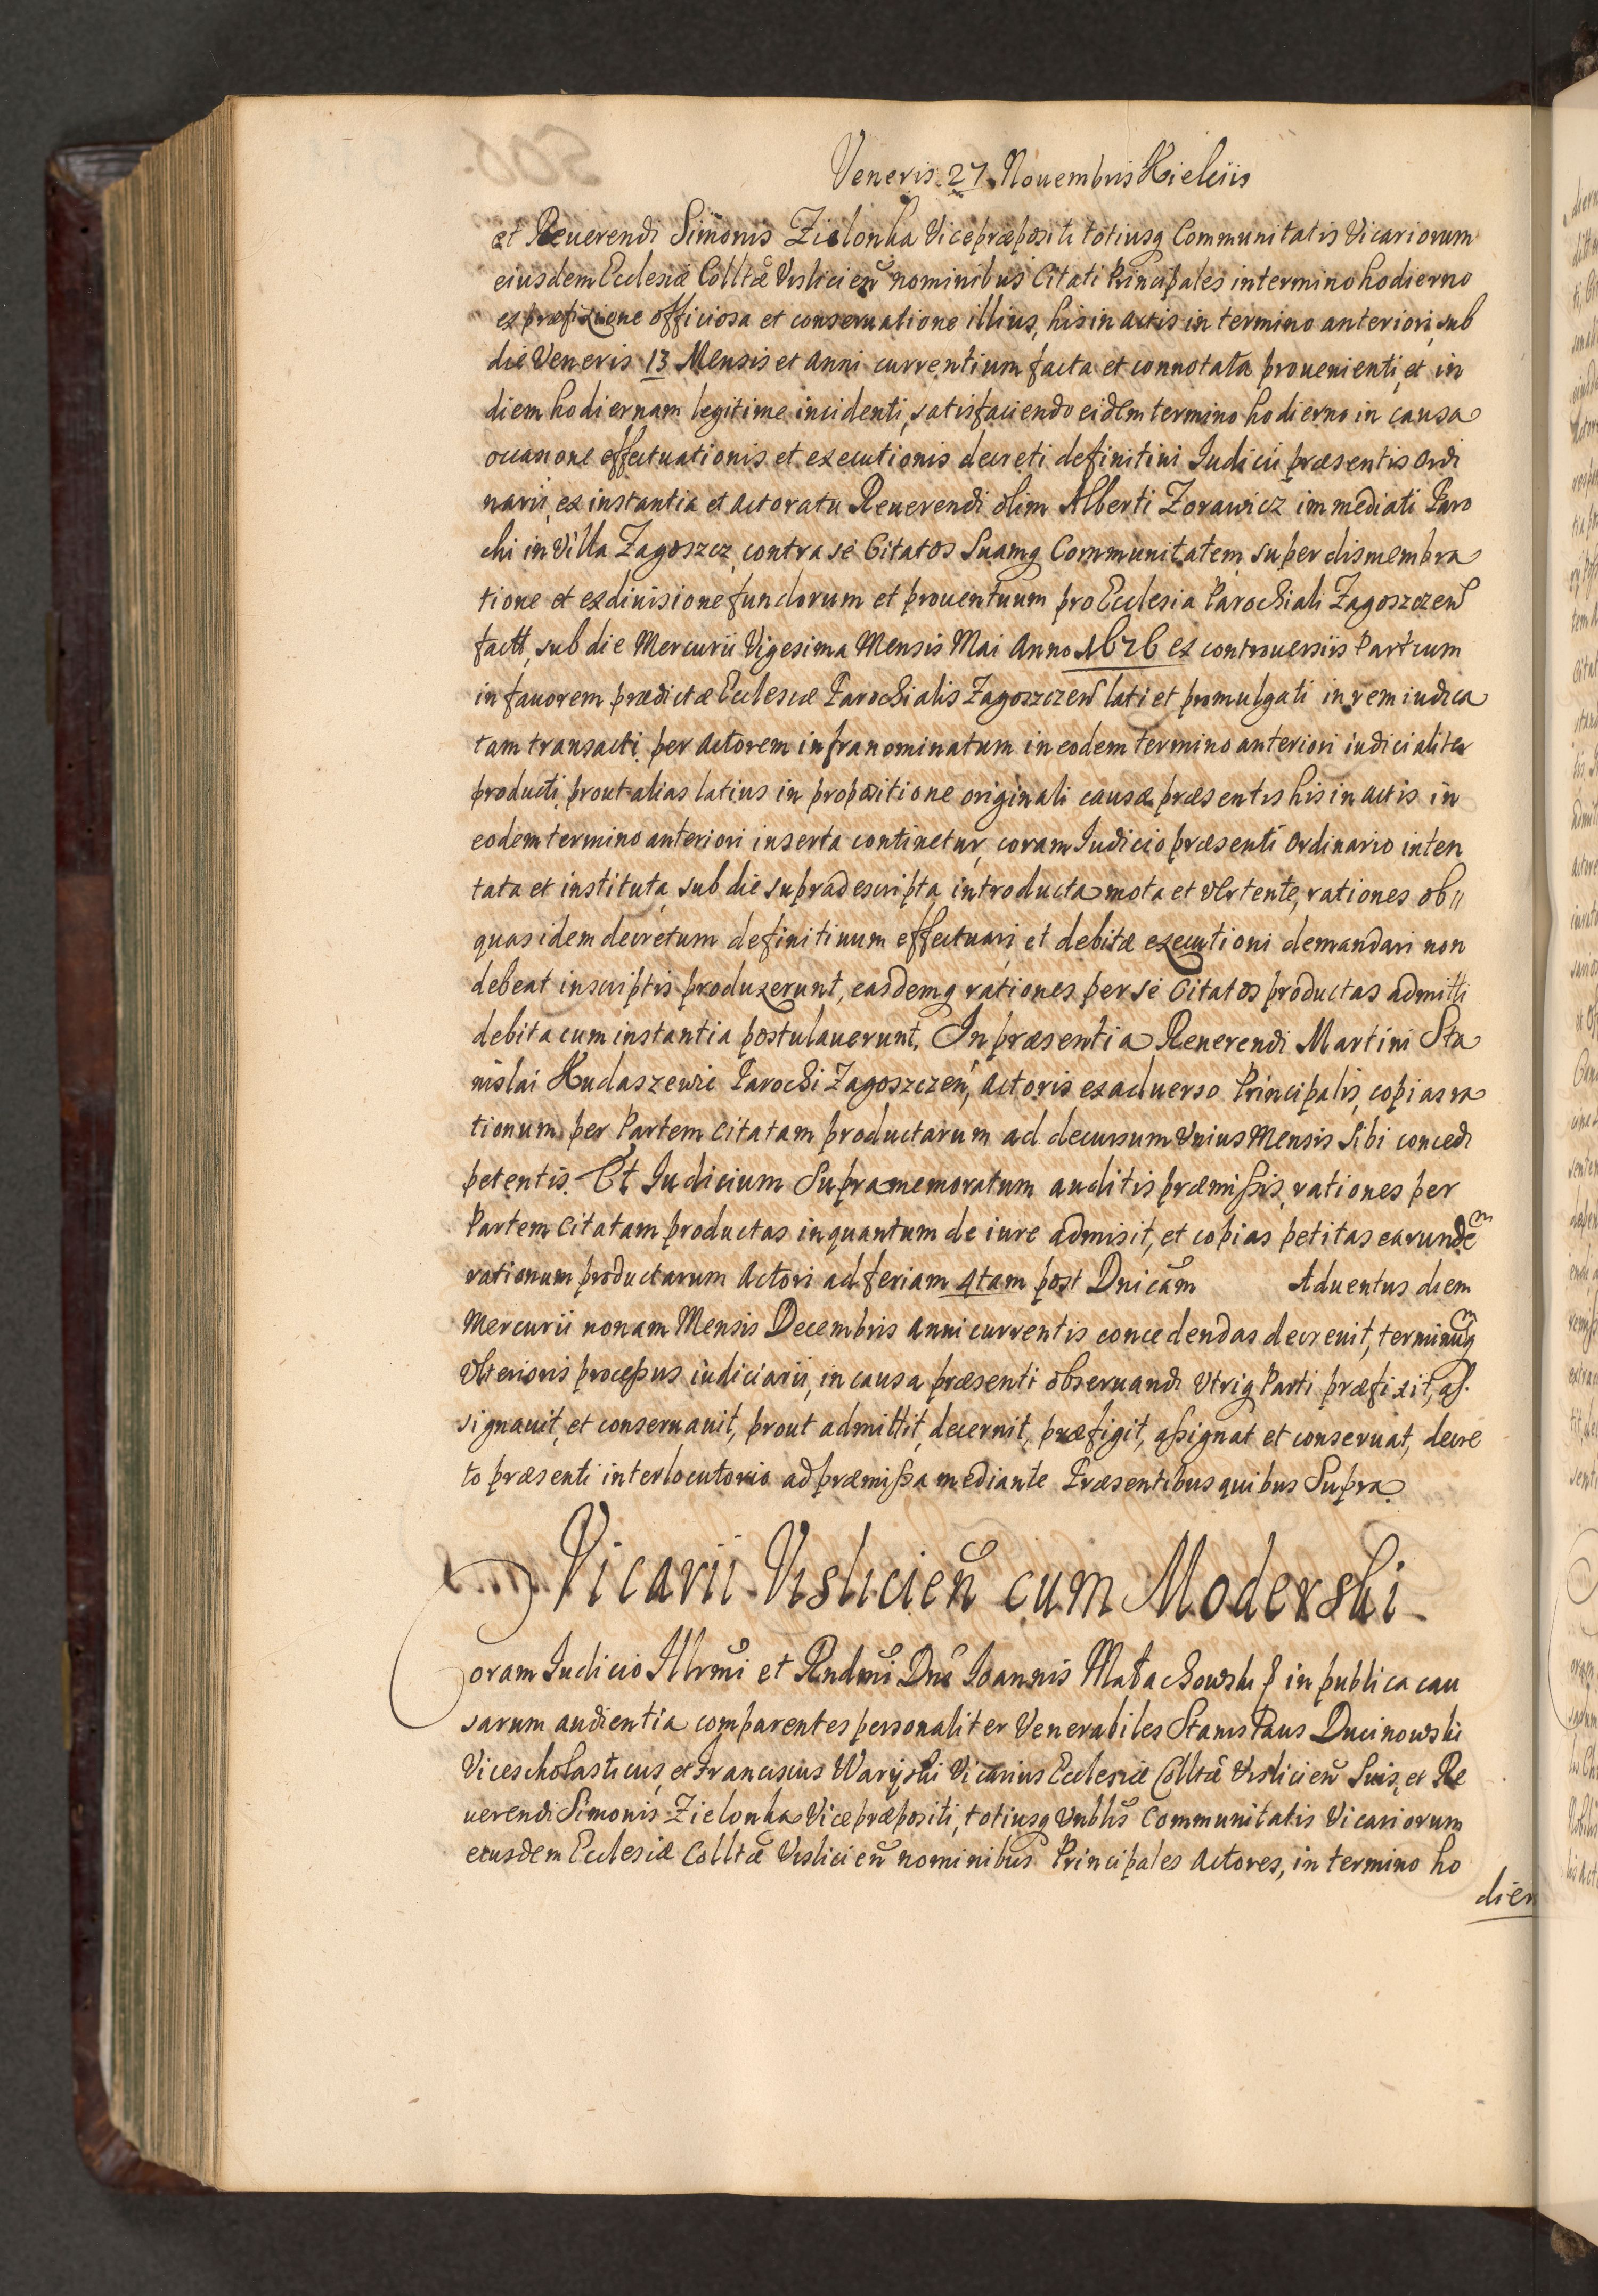 Veneris 27 Nouembris Kielciis
et Reuerendi Simonis Zielonka Vicepræpositi totiusq Communitatis Vicariorum
eiusdem Ecclesiæ Colltæ Vislicieñ nominibus Citati Principales in termino hodierno
ex præfixione officiosa et conseruatione illius, his in actis in termino anteriori, sub
die Veneris 13 Mensis et Anni currentium facta et connotata prouenienti, et in
diem hodiernam legitime incidenti, satisfaciendo eidem termino hodierno in causa
occasione effectuationis et executionis decreti definitiui Iudicii præsentis Ordi
narii, ex instantia et actoratu Reuerendi olim Alberti Zorawicz immediati Paro
chi in Villa Zagoszcz, contra se Citatos Suamq Communitatem, super dismembra
tione et exdiuisione fundorum et prouentuum pro Ecclesia Parochiali Zagoszczeñ
factt, sub die Mercurii Vigesima Mensis Mai Anno 1676 ex controuersiis Partium
in fauorem prædictæ Ecclesiæ Parochialis Zagoszczeñ lati et promulgati in rem iudica
tam transacti, per Actorem infranominatum in eodem termino anteriori iudicialiter
producti, prout alias latius in propositione originali causæ præsentis his in actis in
eodem termino anteriori inserta continetur, coram Iudicio præsenti Ordinario inten
tata et instituta, sub die supradescripta introducta mota et vertente, rationes ob//
quas idem decretum definitiuum effectuari, et debitæ executioni demandari non
debeat in scriptis produxerunt, easdemq rationes per se Citatos productas admitti
debita cum instantia postulauerunt. In præsentia Reuerendi Martini Sta
nislai Kudaszewic Parochi Zagoszczeñ, Actoris ex aduerso Principalis, copias ra
tionum per Partem Citatam productarum ad decursum Vnius Mensis Sibi concedi
petentis. Et Iudicium Supramemoratum auditis præmissis, rationes per
Partem Citatam productas inquantum de iure admisit, et copias petitas earundem
rationum productarum Actori ad feriam 4tam post Dnicam Aduentus diem
Mercurii nonam Mensis Decembris Anni currentis concedendas decreuit, terminumq
Vlterioris processus iudiciarii, in causa præsenti obseruandi Vtriq Parti præfixit, as.
signauit, et conseruauit, prout admittit, decernit, præfigit, assignat et conseruat, decre
to præsenti interlocutorio ad præmissa mediante Præsentibus quibus Supra.
Vicarii Vislicieñ cum Moderski
Coram Iudicio Illrmi et Rndmi Dni Ioannis Małachowski p in publica cau
sarum audientia comparentes personaliter Venerabiles Stanislaus Ducinowski
Vicescholasticus, et Franciscus Waryski Vicarius Ecclesiæ Colltæ Vislicieñ Suis, et Re
uerendi Simonis Zielonka Vicepræpositi, totiusq Vnblis Communitatis Vicariorum
eiusdem Ecclesiæ Colltæ Vislicieñ nominibus Principales Actores, in termino ho
dier